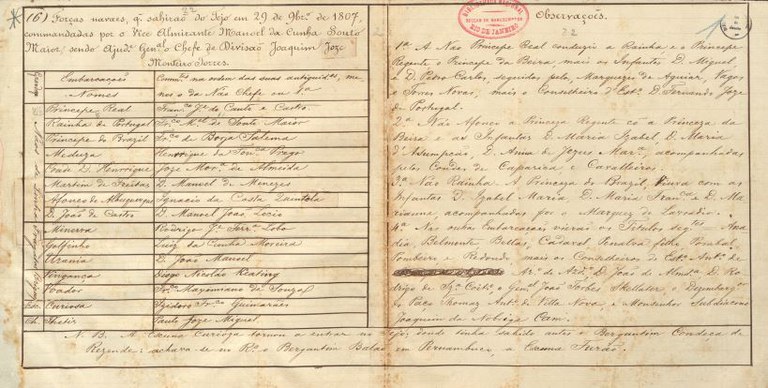 (6) Forças navaes, q. sahirão do Tejo em 29 de 9br.º de 1807,
commandadas por o Vice Almirante Manoel da Cunha Souto
Maior, sendo Ajud.e Gen.al o Chefe de Divisão Joaquim Joze
Monteiro Torres.
Embarcações
Nomes
Comm.es na ordem das suas antiguid.es, me-
nos o da Não Chefe ou 1.ª
Principe Real Fran.co J.e do Canto e Castro.
Rainha de Portugal Fr.co M.el de Souto Maior
Principe do Brazil Fr.co de Borja Salema
Meduza Henrique da Fon.ca Prego
Conde D. Henrique Joze Mar.a de Almeida
Martim de Freitas D. Manoel de Menezes
Afonso de Albuquerque Ignacio da Costa Quintela
D. João de Castro D. Manoel João Locio
Minerva Rodrigo J.e Ferr.a Lobo
Golfinho Luiz da Cunha Moreira
Urania D. João Manoel
Vingança Diogo Nicolão Keating
Voador Fr.co Maximiano de Souza
Esc. Curiosa Izidoro Fr.co Guimarães
Ch. Thetis Paulo Joze Miguel
N. B. A Escuna Curioza tornou a entrar no Tejo, donde tinha sahido antes o Bergantim Condeça de
Rezende: achava-se no R.º o Bergantim Balão e em Pernambuco, a Escuna Furão.
BIBLIOTHECA NACIONAL
RIO DE JANEIRO
22
Observações.
1.ª A Não Principe Real conduzio a Rainha e o Principe
Regente o Principe da Beira, mais os Infantes D. Miguel,
e D. Pedro Carlos, seguidos pelos Marquezes de Aguiar, Vagos
e Torres Novas; mais o Conselheiro d'Est.º D. Fernando Joze
de Portugal.
2.ª Náo Afonso a Princeza Regente cõ a Princeza da
Beira e as Infantas D. Maria Izabel, D. Maria
d'Assumpção, D. Anna de Jezus Mar.a, acompanhadas
pelos Condes de Caparica e Cavalleiros.
3.ª Não Rainha. A Princeza do Brazil, Viuva com as
Infantas D. Izabel Maria, D. Maria Fran.ca e D. Ma-
rianna acompanhadas por o Marquez de Lavradio.
4.ª Nas outras Embarcações vierão os Titulos seg.tes Ana-
dia, Belmonte, Bellas, Cadaval, Penalva filho, Pombal,
Pombeiro e Redondo, mais os Conselheiros de Est.º Ant.º de
Ar.º de Az.do, D. João de Alm.da, D. Ro-
drigo de Sz.a Cout.º o Gen.al João Forbes Skellater, o Dezembarg.or
do Paço Thomaz Ant.º de Villa Nova, e Monsenhor Subdiacono
Joaquim da Nobrega Cam.